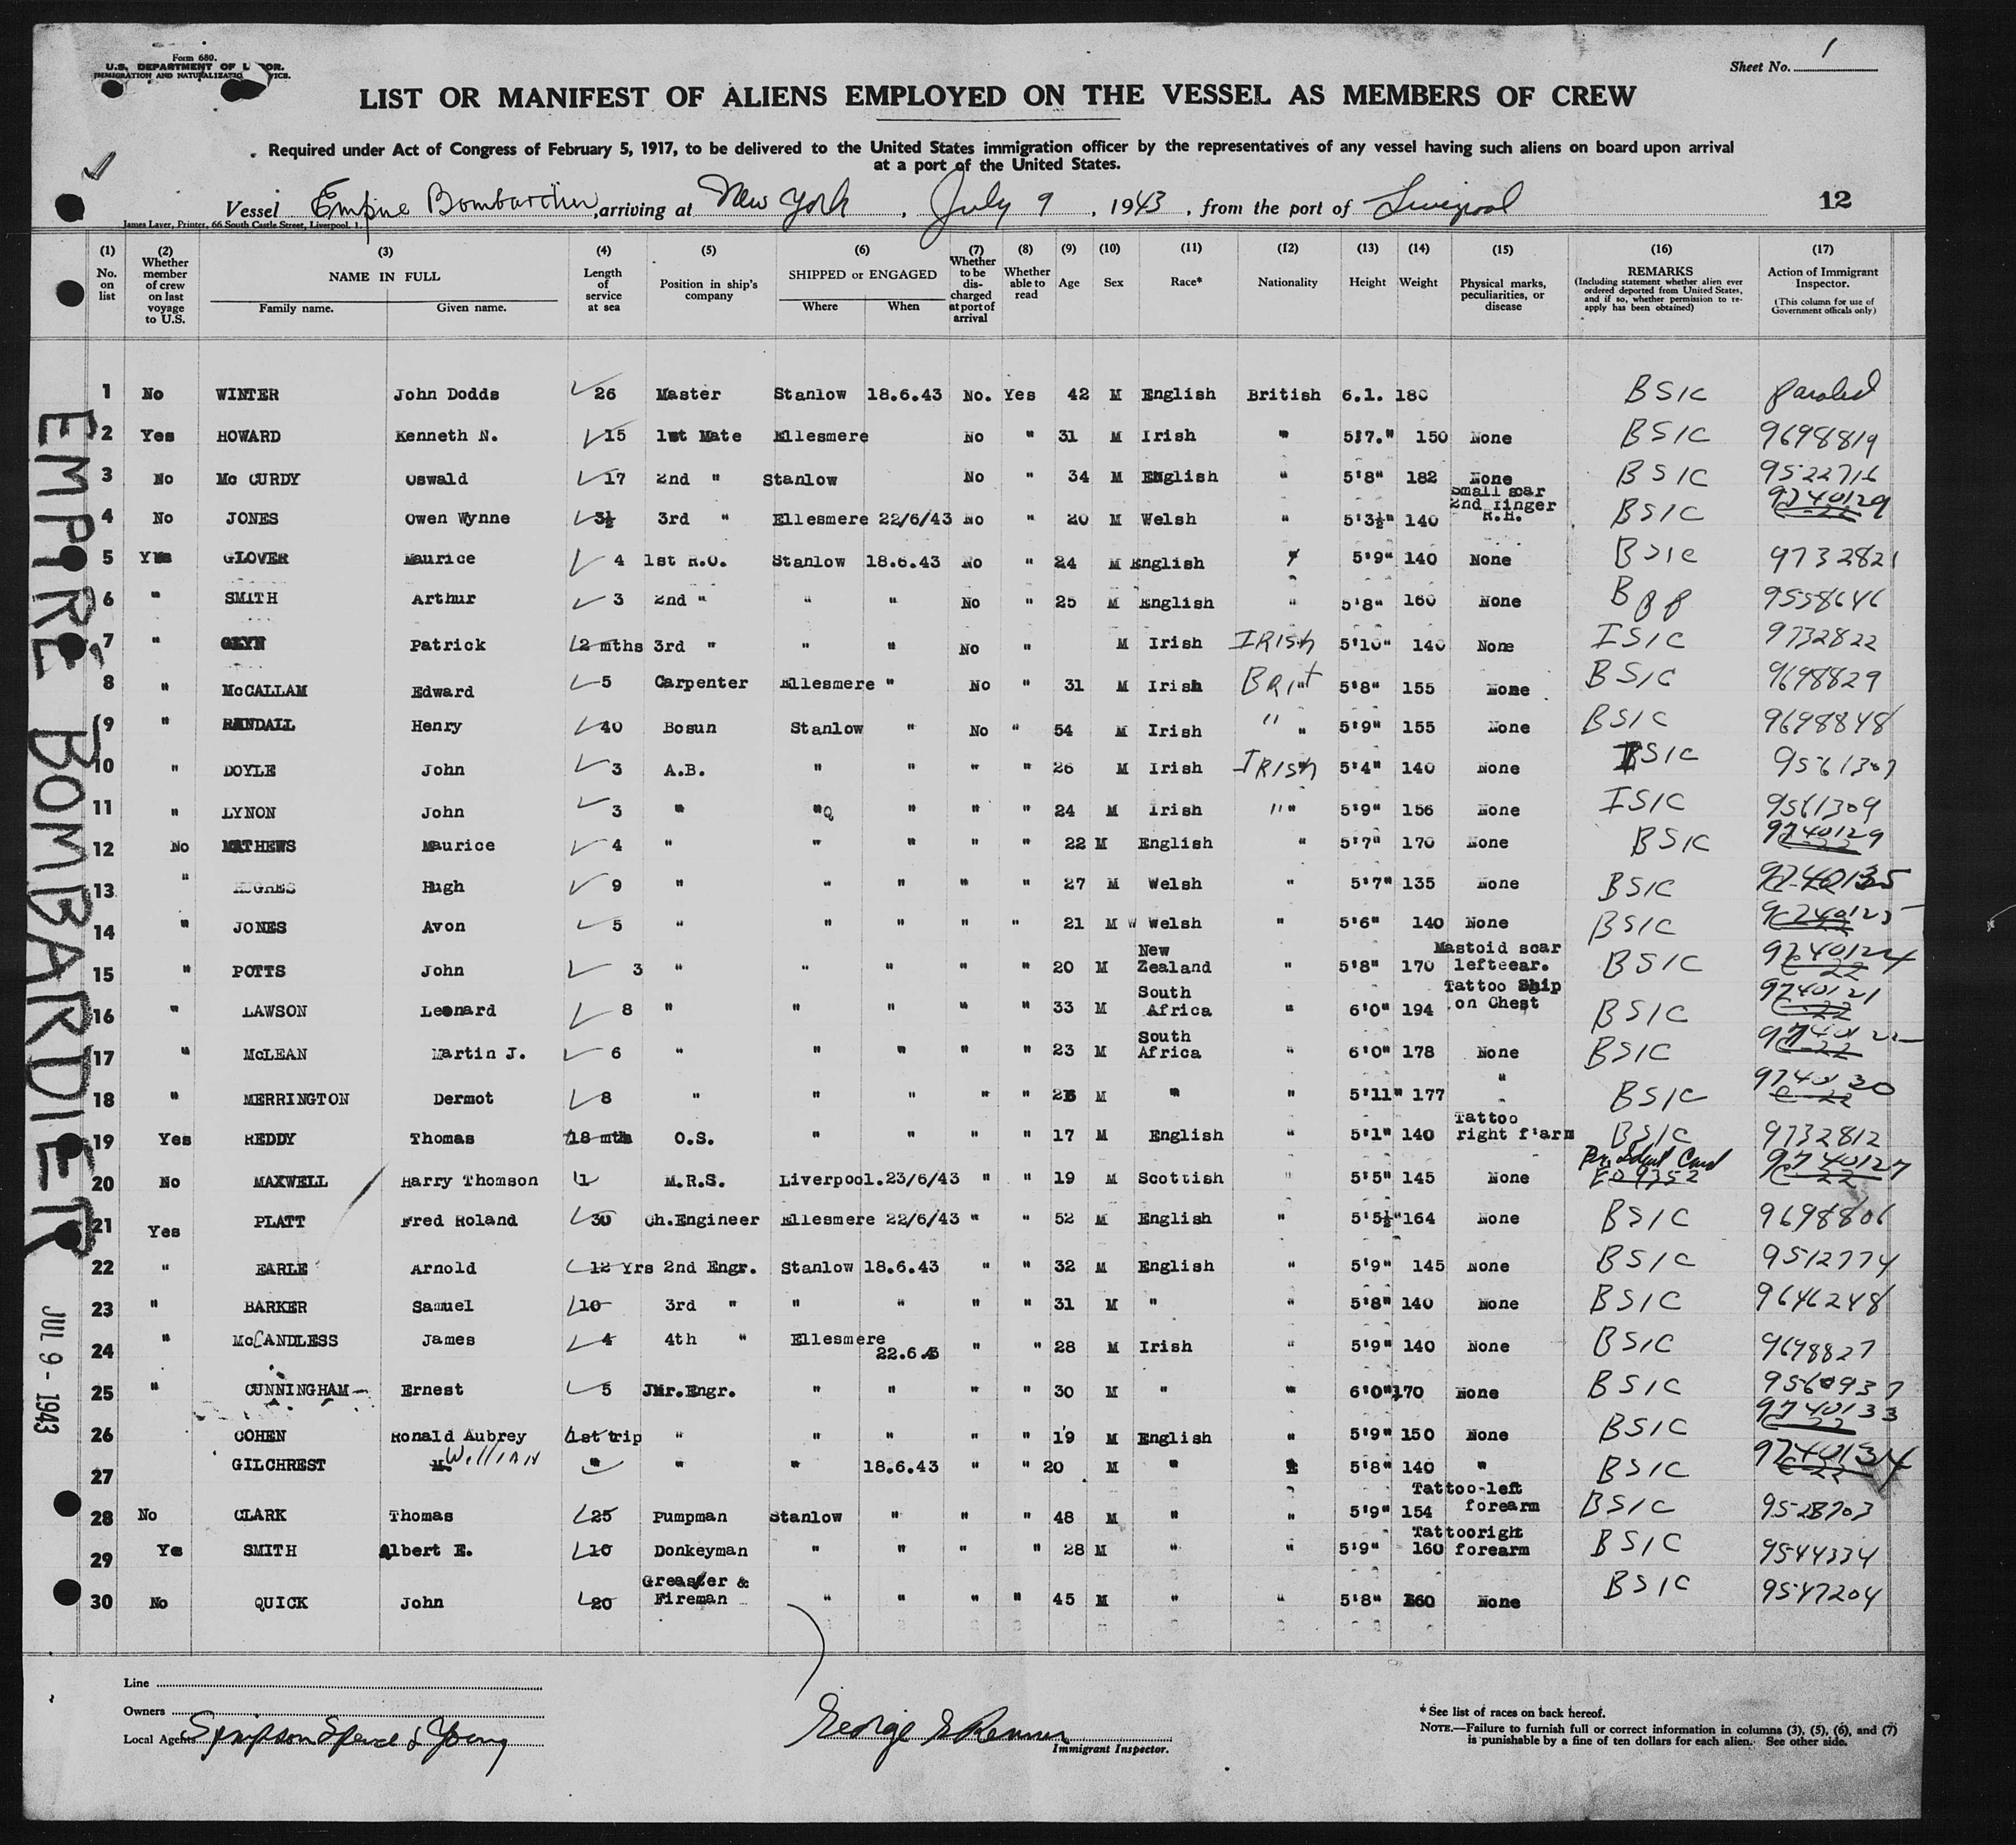 Form 680.
U.S. DEPARTMENT OF L OR.
IMMIGRATION AND NATURALIZATIO VICE.
Sheet No. 1
LIST OR MANIFEST OF ALIENS EMPLOYED ON THE VESSEL AS MEMBERS OF CREW
Required under Act of Congress of February 5, 1917, to be delivered to the United States immigration officer by the representatives of any vessel having such aliens on board upon arrival
at a port of the United States.
Vessel Empire Bombardier, arriving at New York, July 9, 1943, from the port of Liverpool
12
James Laver, Printer, 66 South Castle Street, Liverpool, 1.
(1) (2) (3) (4) (5) (6) (7) (8) (9) (10) (11) (12) (13) (14) (15) (16) (17)
No. on list
Whether member of crew on last voyage to U.S.
NAME IN FULL
Family name. Given name.
Length of service at sea
Position in ship's company
SHIPPED or ENGAGED
Where When
Whether to be discharged at port of arrival
Whether able to read
Age
Sex
Race*
Nationality
Height
Weight
Physical marks, peculiarities, or disease
REMARKS
(Including statement whether alien ever ordered deported from United States, and if so, whether permission to re-apply has been obtained)
Action of Immigrant Inspector.
(This column for use of Government officials only)
1 No WINTER John Dodds 26 Master Stanlow 18.6.43 No. Yes 42 M English British 6.1. 180 BSIC Paroled
2 Yes HOWARD Kenneth N. 15 1st Mate Ellesmere No " 31 M Irish " 5'7." 150 None BSIC 9698819
3 No Mc CURDY Oswald 17 2nd " Stanlow No " 34 M English " 5'8" 182 None BSIC 9522716
4 No JONES Owen Wynne 3½ 3rd " Ellesmere 22/6/43 No " 20 M Welsh " 5'3½" 140 Small scar 2nd finger R.H. BSIC 9740129
5 Yes GLOVER Maurice 4 1st R.O. Stanlow 18.6.43 No " 24 M English " 5'9" 140 None BSIC 9732821
6 " SMITH Arthur 3 2nd " " " No " 25 M English " 5'8" 160 None 9558646
7 " GLYN Patrick 2 mths 3rd " " " No " M Irish IRISH 5'10" 140 None ISIC 9732822
8 " McCALLAM Edward 5 Carpenter Ellesmere " No " 31 M Irish BRIT 5'8" 155 None BSIC 9698829
9 " RANDALL Henry 40 Bosun Stanlow " No " 54 M Irish " " 5'9" 155 None BSIC 9698848
10 " DOYLE John 3 A.B. " " " " 26 M Irish IRISH 5'4" 140 None ISIC 9561307
11 " LYNON John 3 " " " " " 24 M Irish " " 5'9" 156 None ISIC 9561309
12 No MATHEWS Maurice 4 " " " " " 22 M English " 5'7" 170 None BSIC 9740129
13 " HUGHES Hugh 9 " " " " " 27 M Welsh " 5'7" 135 None BSIC 9740135
14 " JONES Avon 5 " " " " " 21 M W Welsh " 5'6" 140 None BSIC
15 " POTTS John 3 " " " " " 20 M New Zealand " 5'8" 170 Mastoid scar lefteear. BSIC 9740124
16 " LAWSON Leonard 8 " " " " " 33 M South Africa " 6'0" 194 Tattoo Ship on Chest BSIC 9740121
17 " McLEAN Martin J. 6 " " " " " 23 M South Africa " 6'0" 178 None BSIC
18 " MERRINGTON Dermot 8 " " " " " M " " 5'11" 177 " BSIC 9740130
19 Yes REDDY Thomas 18 mth O.S. " " " " 17 M English " 5'1" 140 Tattoo right f'arm BSIC 9732812
20 No MAXWELL Harry Thomson 1 M.R.S. Liverpool.23/6/43 " " 19 M Scottish " 5'5" 145 None 9740127
21 Yes PLATT Fred Roland 30 Ch.Engineer Ellesmere 22/6/43 " " 52 M English " 5'5½" 164 None BSIC 9698806
22 " EARLE Arnold 12 Yrs 2nd Engr. Stanlow 18.6.43 " " 32 M English " 5'9" 145 None BSIC 9512774
23 " BARKER Samuel 10 3rd " " " " " 31 M " " 5'8" 140 None BSIC 9646248
24 " McCANDLESS James 4 4th " Ellesmere 22.6.43 " " 28 M Irish " 5'9" 140 None BSIC 9698827
25 " CUNNINGHAM Ernest 5 Jnr.Engr. " " " " 30 M " " 6'0" 170 None BSIC 9560937
26 COHEN Ronald Aubrey 1st trip " " " " " 19 M English " 5'9" 150 None BSIC 9740133
27 GILCHREST M. WILLIAM " " " 18.6.43 " " 20 M " " 5'8" 140 " BSIC 9740134
28 No CLARK Thomas 25 Pumpman Stanlow " " " 48 M " " 5'9" 154 Tattoo-left forearm BSIC 9528703
29 Ye SMITH Albert E. 10 Donkeyman " " " " 28 M " " 5'9" 160 Tattooright forearm BSIC 9544334
30 No QUICK John 20 Greaster & Fireman " " " " 45 M " " 5'8" 160 None BSIC 9547204
EMPIRE BOMBARDIER
JUL 9 - 1943
Line
Owners
Local Agents Simpson Spence & Young
George
Immigrant Inspector.
* See list of races on back hereof.
NOTE.—Failure to furnish full or correct information in columns (3), (5), (6), and (7)
is punishable by a fine of ten dollars for each alien. See other side.